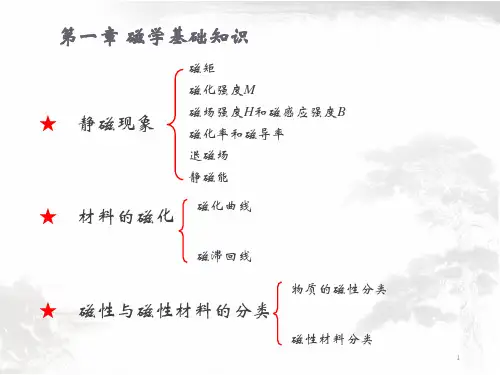 第一章 磁学基础知识
磁矩
磁化强度M
磁场强度H和磁感应强度B
★ 静磁现象
磁化率和磁导率
退磁场
静磁能
磁化曲线
★ 材料的磁化
磁滞回线
物质的磁性分类
★ 磁性与磁性材料的分类
磁性材料分类
1